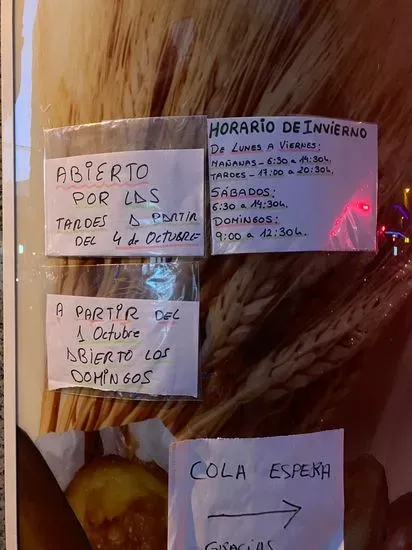 ABIERTO
POR LAS
TARDES A PARTIR
DEL 4 de OCTUBRE
HORARIO DE INVIERNO
DE LUNES A VIERNES:
MAÑANAS - 6:30 a 14:30h.
TARDES - 17:00 a 20:30h.
SÁBADOS:
6:30 a 14:30h.
DOMINGOS:
9:00 a 12:30h.
A PARTIR DEL
1 Octubre
ABIERTO LOS
DOMINGOS
COLA ESPERA
GRACIAS